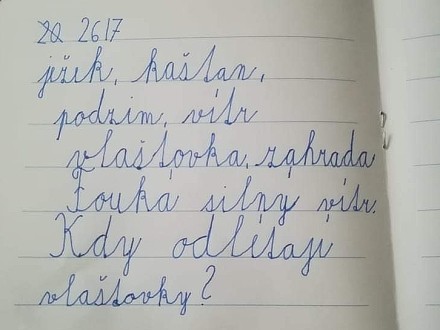 26/7
ježek, kaštan,
podzim, vítr
vlaštovka, zahrada
Fouká silny vítr.
Kdy odlétají
vlaštovky?